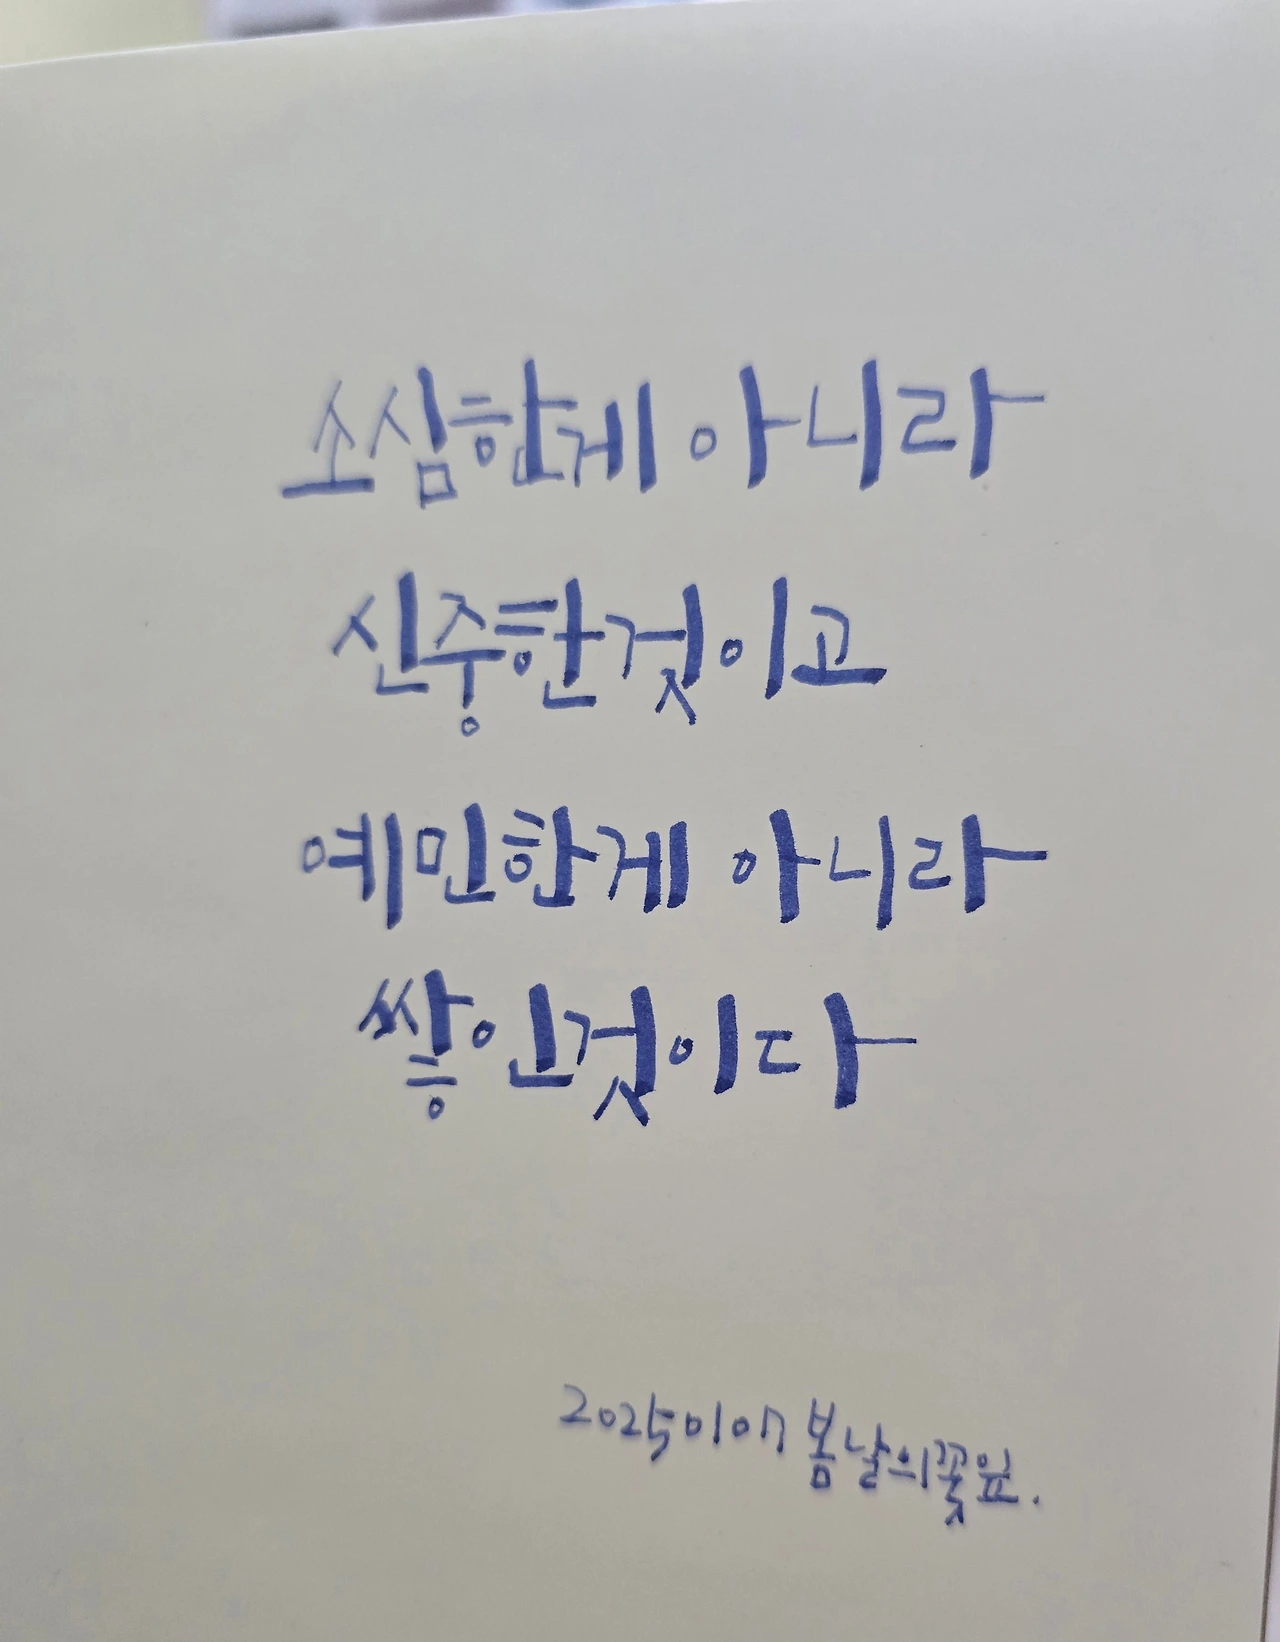 소심한게 아니라
신중한것이고
예민한게 아니라
쌓인것이다
20250107 봄날의꽃잎.